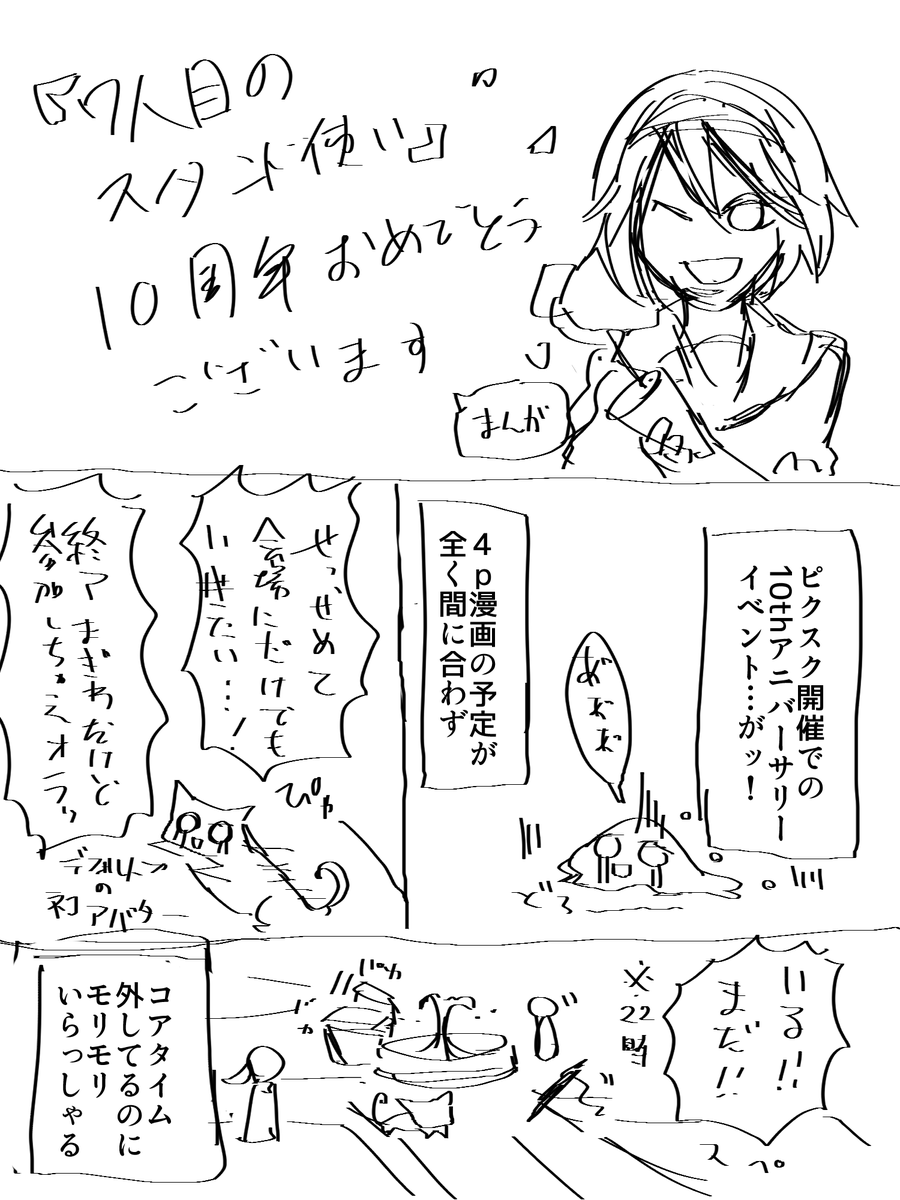 『7人目の
スタンド使い』
10周年おめでとう
ございます
まんが
ピクスク開催での
10thアニバーサリー
イベント…がッ!
あぉぉ
どろ
4p漫画の予定が
全く間に合わず
せっ、せめて
会場にだけでも
いきたい…!
ぴゃ
終了まぎわだけど
参加しちゃえオラッ
デフォルトの
ネコ
アバター
いる!!
まだ!!
※22時
スペ
コアタイム
外してるのに
モリモリ
いらっしゃる